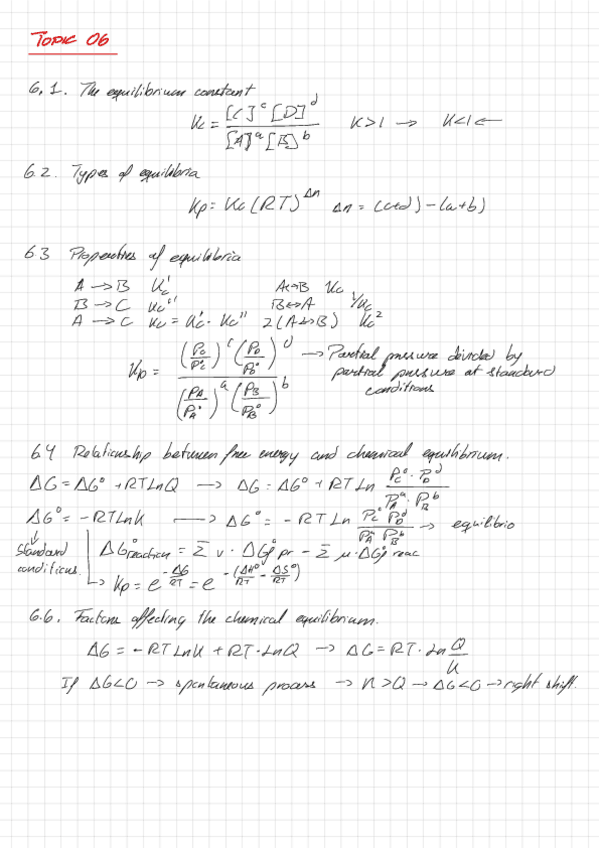 TOPIC 06
6.1. The equilibrium constant
Kc = [C]^c [D]^d / [A]^a [B]^b   K>1 →   K<1 ←
6.2. Types of equilibria
Kp = Kc (RT)^Δn   Δn = (c+d) - (a+b)
6.3 Properties of equilibria
A → B   Kc'   A↔B   Kc
B → C   Kc''   B↔A   1/Kc
A → C   Kc = Kc' · Kc''   2(A↔B)   Kc²
Kp = (Pc/Pc°)^c (PD/PD°)^d / (PA/PA°)^a (PB/PB°)^b → Partial pressure divided by
partial pressure at standard
conditions
6.4 Relationship between free energy and chemical equilibrium.
ΔG = ΔG° + RT Ln Q → ΔG = ΔG° + RT Ln Pc^c · PD^d / PA^a · PB^b
ΔG° = -RT Ln K → ΔG° = -RT Ln Pc^c PD^d / PA^a PB^b → equilibrio
Standard
conditions.
ΔG°reaction = Σ ν · ΔGf° pr - Σ μ · ΔGf° reac
↳ Kp = e^(-ΔG/RT) = e^-(ΔH°/RT - ΔS°/RT)
6.6. Factors affecting the chemical equilibrium.
ΔG = -RT Ln K + RT · Ln Q → ΔG = RT · Ln Q/K
If ΔG<0 → spontaneous process → K>Q → ΔG<0 → right shift.